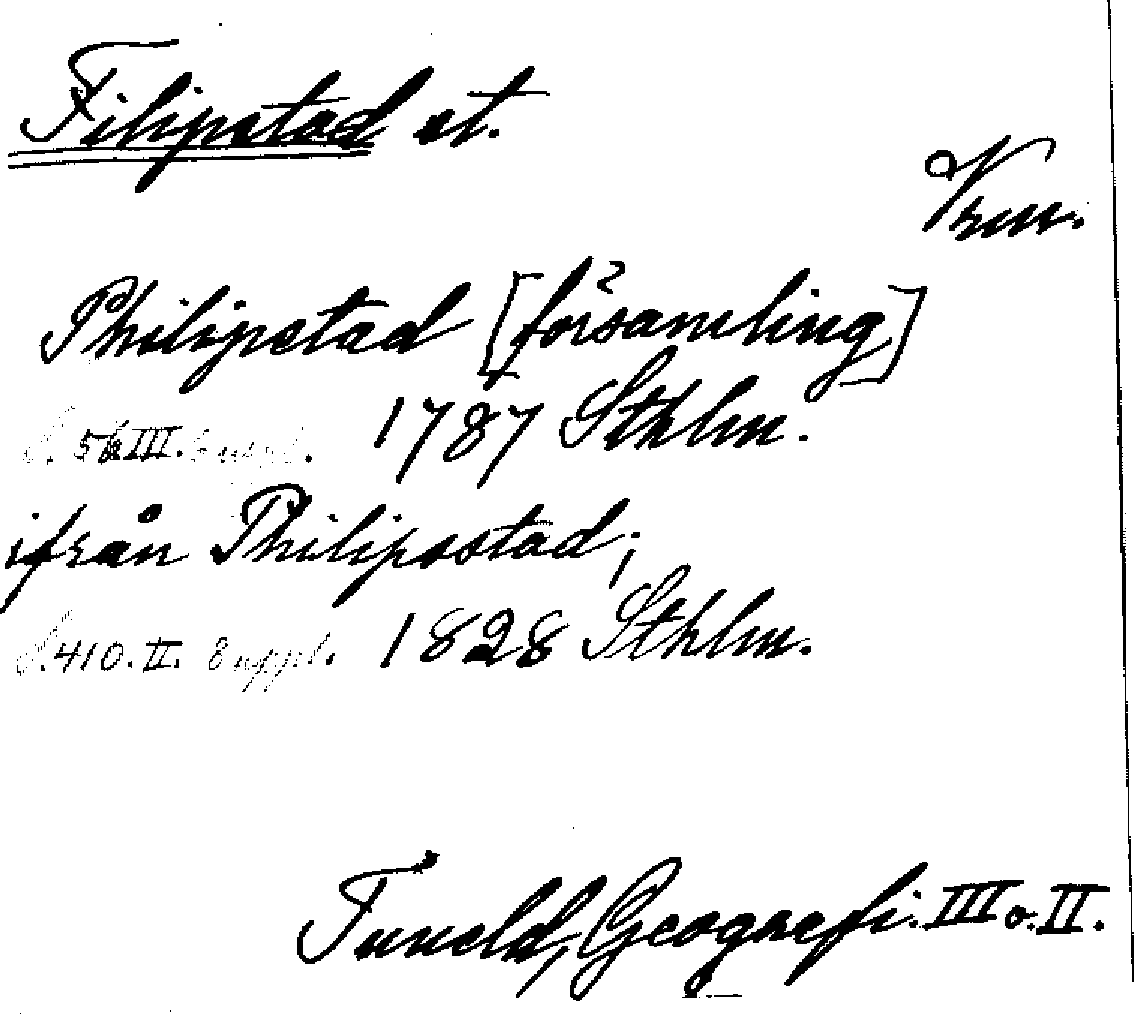 Filipstad st.
Vrm.
Philipstad [församling]
S. III. Suppl. 1787 Sthlm.
ifrån Philipsstad;
S. 410. II. Suppl. 1828 Sthlm.
Tuneld, Geografi. III o. II.